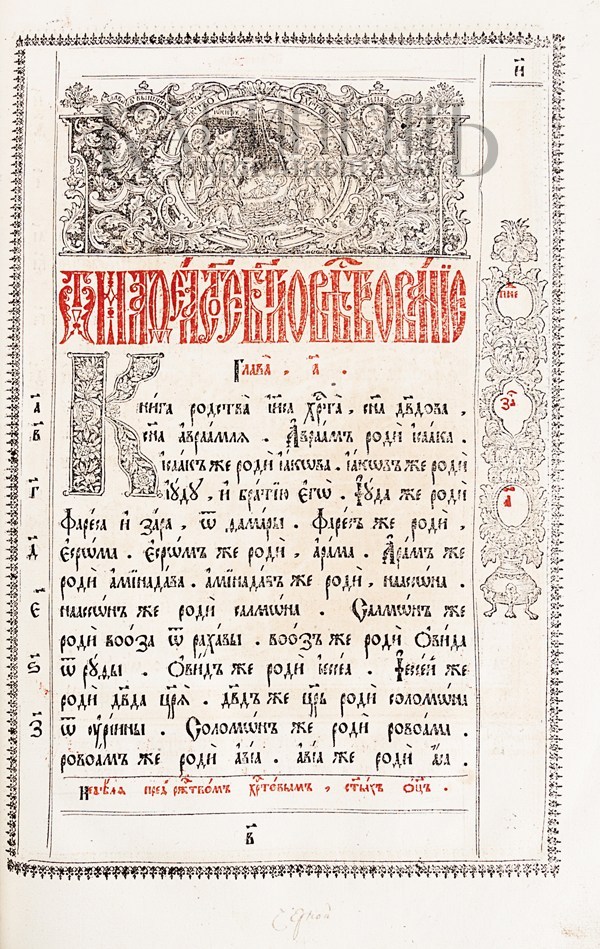 и҃
Глава̀ , а҃ .
Кни́га родства̀ і҆и҃са хр҇та̀ , сн҃а дв҃дова ,
сн҃а а҆враа́мля . А҆враа́мъ родѝ і҆саа́ка .
і҆саа́къ же родѝ і҆а́кѡва . і҆а́кѡвъ же родѝ
і҆ꙋ́дꙋ , и҆ бра́тїю є҆гѡ̀ . І҆ꙋ́да же родѝ
фаре́са и҆ за́ра , ѿ ѳама́ры . Фаре́съ же родѝ ,
є҆срѡ́ма . Є҆срѡ́мъ же родѝ , а҆ра́ма . А҆ра́мъ же
родѝ а҆мїнада́ва . а҆мїнада́въ же родѝ , наассѡ́на .
наассѡ́нъ же родѝ салмѡ́на . Салмѡ́нъ же
родѝ воо́за ѿ раха́вы . воо́зъ же родѝ Ѻ҆ви́да
ѿ рꙋ́ѳы . Ѻ҆ви́дъ же родѝ і҆ессе́а . І҆ессе́й же
родѝ дв҃да цр҃ѧ̀ . дв҃дъ же цр҃ь родѝ соломѡ́на
ѿ ᲂу҆рі́ины . Соломѡ́нъ же родѝ ровоа́ма .
ровоа́мъ же родѝ а҆ві́а . а҆ві́а же родѝ а҆́са .
Недѣ́лѧ пред̾ рж҇тво́мъ хр҇то́вымъ , ст҃ы́хъ ѻ҆ц҃ъ .
а҃
в҃
г҃
д҃
є҃
ѕ҃
з҃
за҇
а҃
в҃